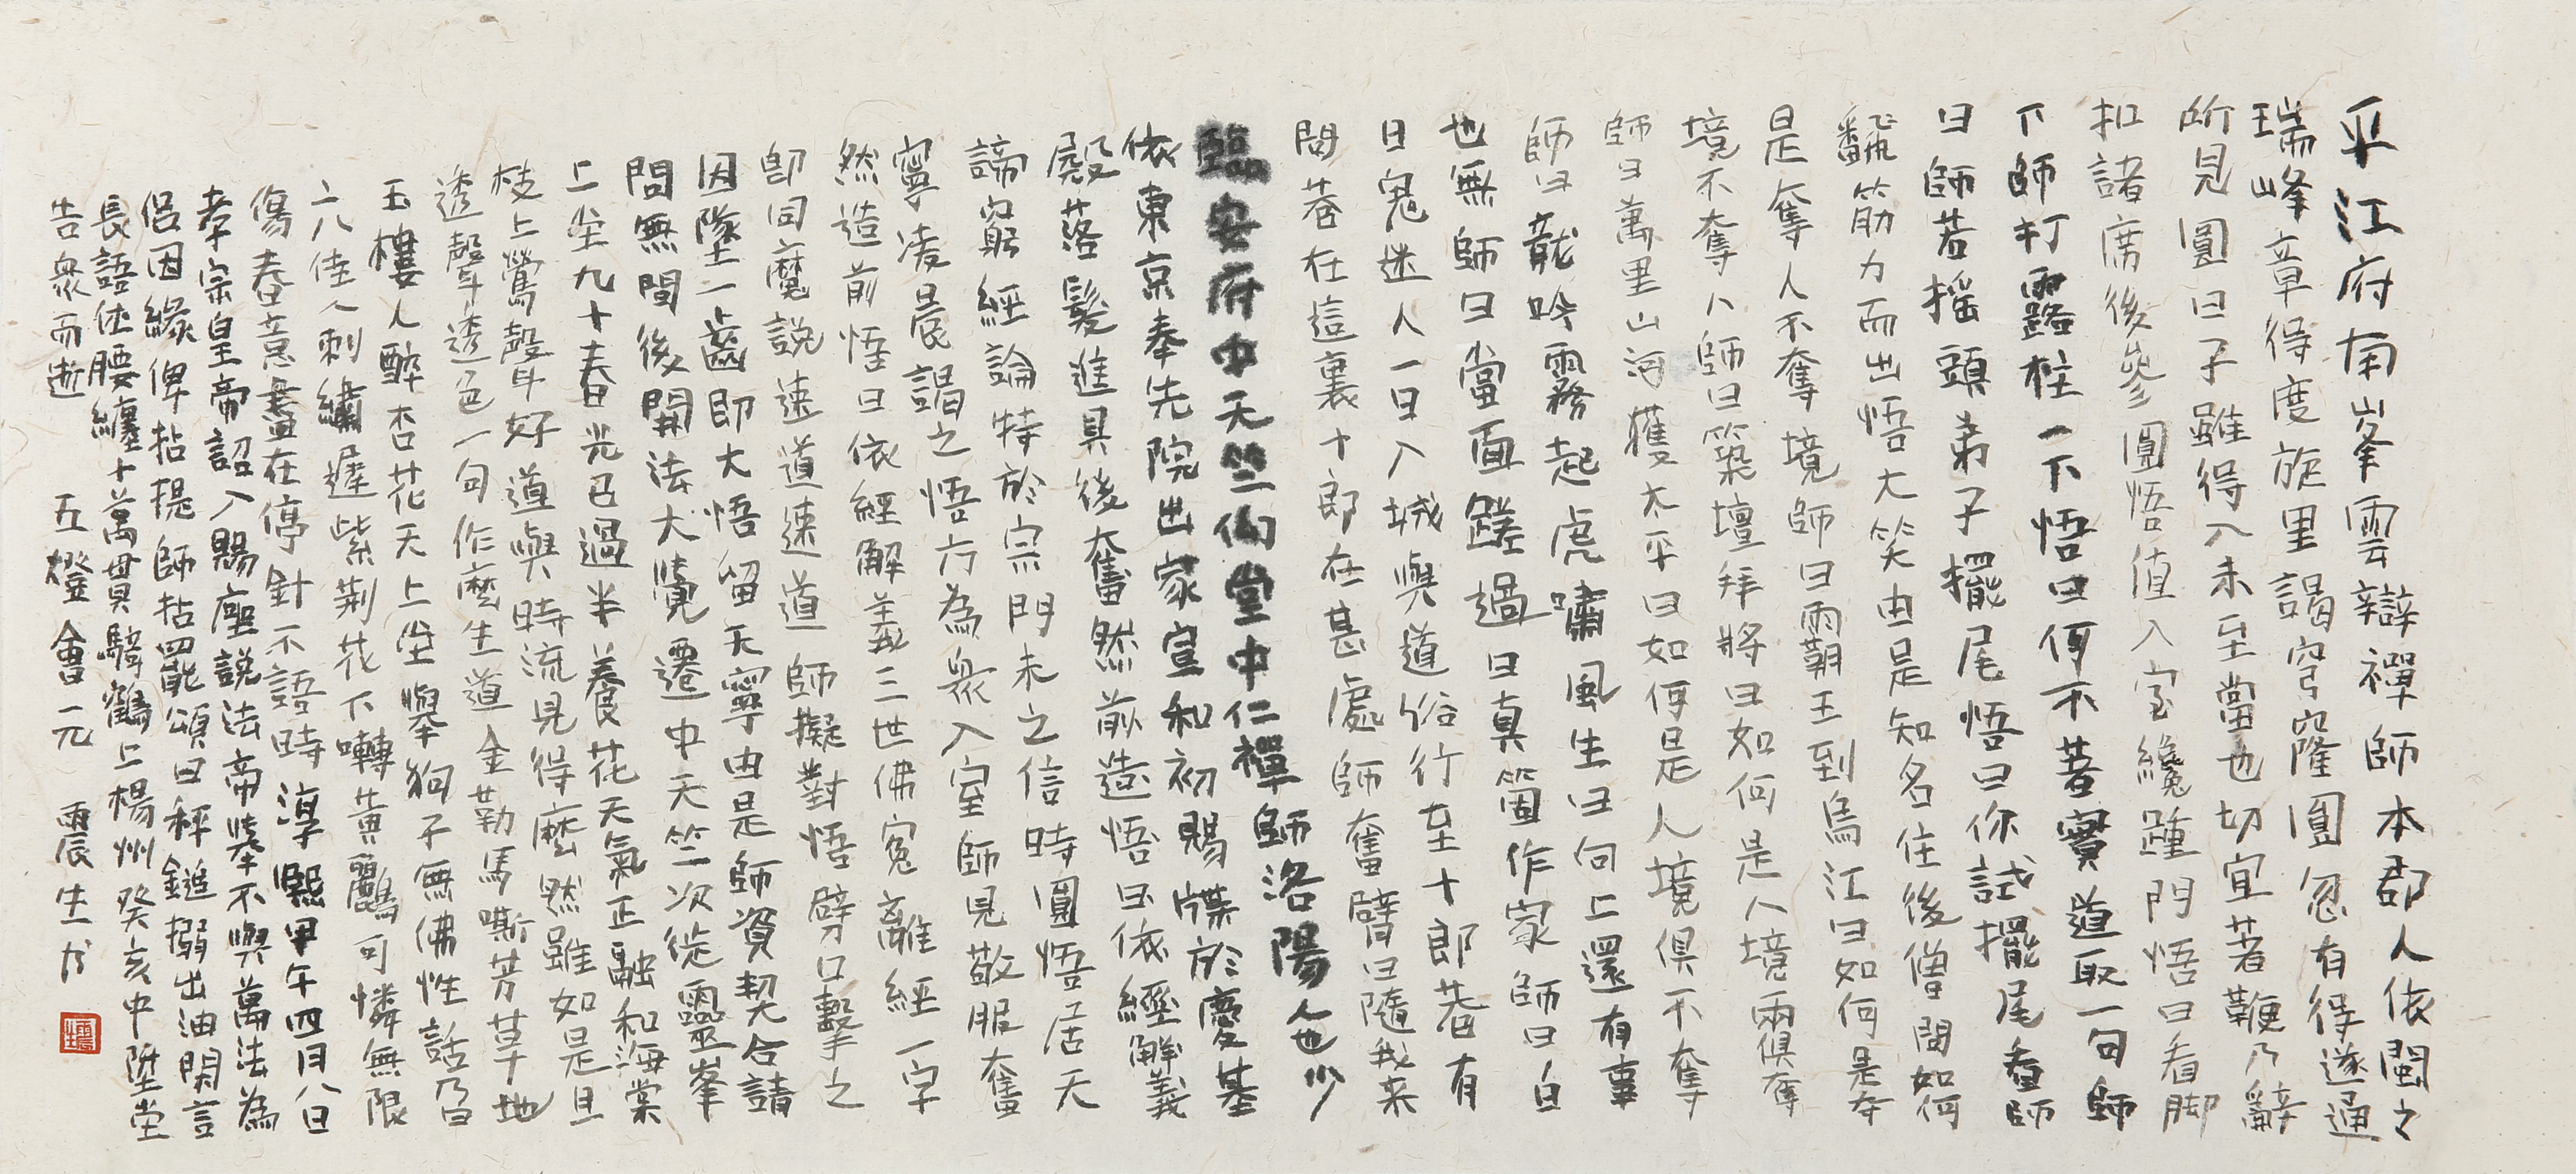 平江府南峯雲辯禪師本郡人依閩之
瑞峰章得度旋里謁穹窿圓忽有得遂通
所見圓曰子雖得入未至當也切宜著鞭乃辭
扣諸席後參圓悟值入室纔踵門悟曰看脚
下師打露柱一下悟曰何不著實道取一句師
曰師若搖頭弟子擺尾悟曰你試擺尾看師
翻筋力而出悟大笑由是知名住後僧問如何
是奪人不奪境師曰霸王到烏江曰如何是奪
境不奪人師曰築壇拜將曰如何是人境兩俱奪
師曰萬里山河獲太平曰如何是人境俱不奪
師曰龍吟霧起虎嘯風生曰向上還有事
也無師曰當面蹉過曰真箇作家師曰白
日鬼迷人一日入城與道俗行至十郎巷有
問巷在這裏十郎在甚處師奮臂曰隨我來
臨安府中天竺仙堂中仁禪師洛陽人也少
依東京奉先院出家宣和初賜牒於慶基
殿落髮進具後奮然前造悟曰依經解義
諦窮經論特於宗門未之信時圓悟居天
寧凌晨謁之悟方為衆入室師見敬服奮
然造前悟曰依經解義三世佛冤離經一字
卽同魔說速道速道師擬對悟劈口擊之
因墜一齒卽大悟留天寧由是師資契合請
問無間後開法大覺遷中天竺次徙靈峯
上坐九十春光已過半養花天氣正融和海棠
枝上鶯聲好道與時流見得麽然雖如是且
透聲透色一句作麽生道金勒馬嘶芳草地
玉樓人醉杏花天上坐舉狗子無佛性話乃曰
六八佳人刺繡遲紫荊花下囀黃鸝可憐無限
傷春意盡在停針不語時淳熙甲午四月八日
孝宗皇帝詔入賜座說法帝舉不與萬法為
侣因緣俾拈提師拈罷頌曰秤鎚搦出油閑言
長語休腰纏十萬貫騎鶴上楊州癸亥中陞堂
告衆而逝　五燈會元　震生书